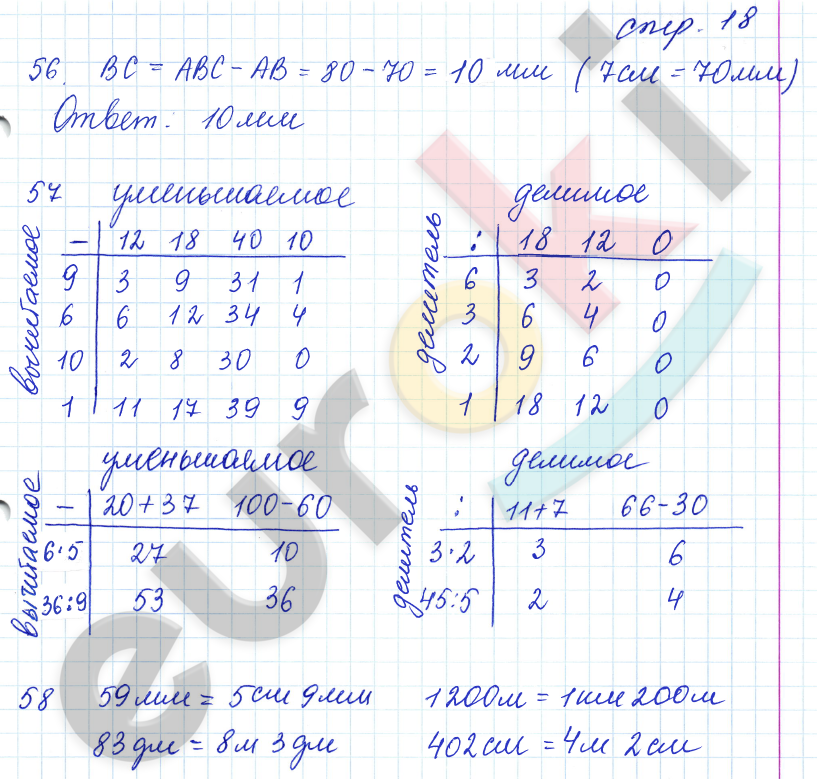 стр. 18
56. BC = ABC - AB = 80 - 70 = 10 мм (7см = 70мм)
Ответ: 10мм
57 уменьшаемое
вычитаемое
- 12 18 40 10
9 3 9 31 1
6 6 12 34 4
10 2 8 30 0
1 11 17 39 9
делимое
делитель
: 18 12 0
6 3 2 0
3 6 4 0
2 9 6 0
1 18 12 0
уменьшаемое
вычитаемое
- 20+37 100-60
6·5 27 10
36:9 53 36
делимое
делитель
: 11+7 66-30
3·2 3 6
45:5 2 4
58 59мм = 5см 9мм 1200м = 1км 200м
83дм = 8м 3дм 402см = 4м 2см
euroki